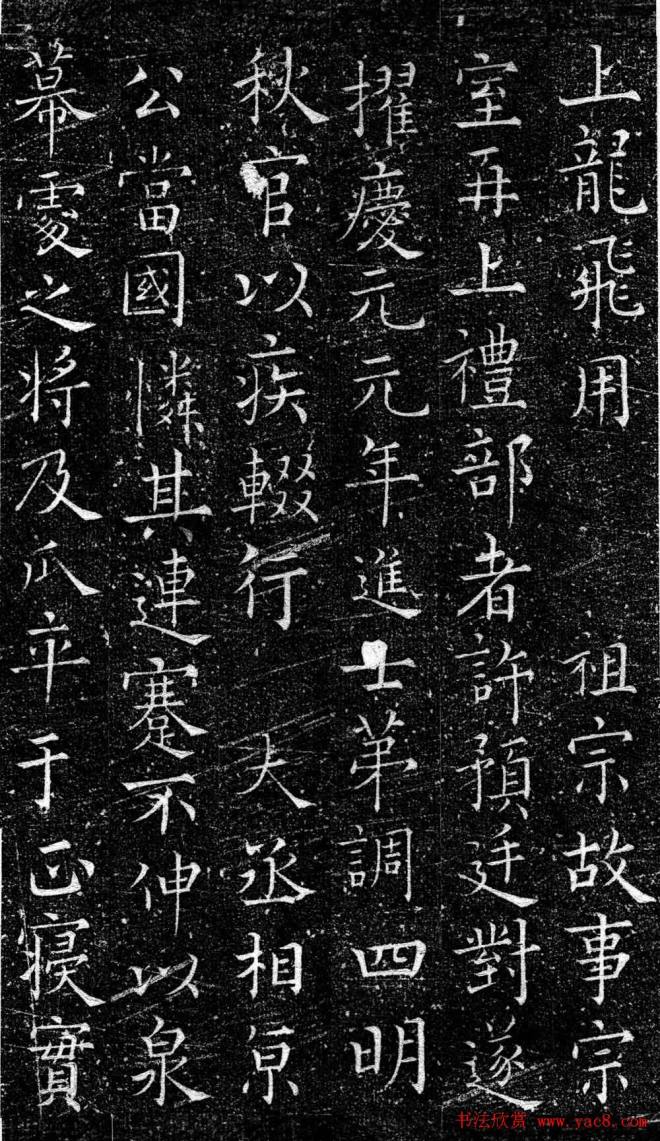 上龍飛用 祖宗故事宗
室再上禮部者許預廷對遂
擢慶元元年進士苐調四明
秋官以疾輟行 大丞相京
公當國憐其連蹇不伸以泉
幕處之将及瓜卒于正寝實
书法欣赏 www.yac8.com